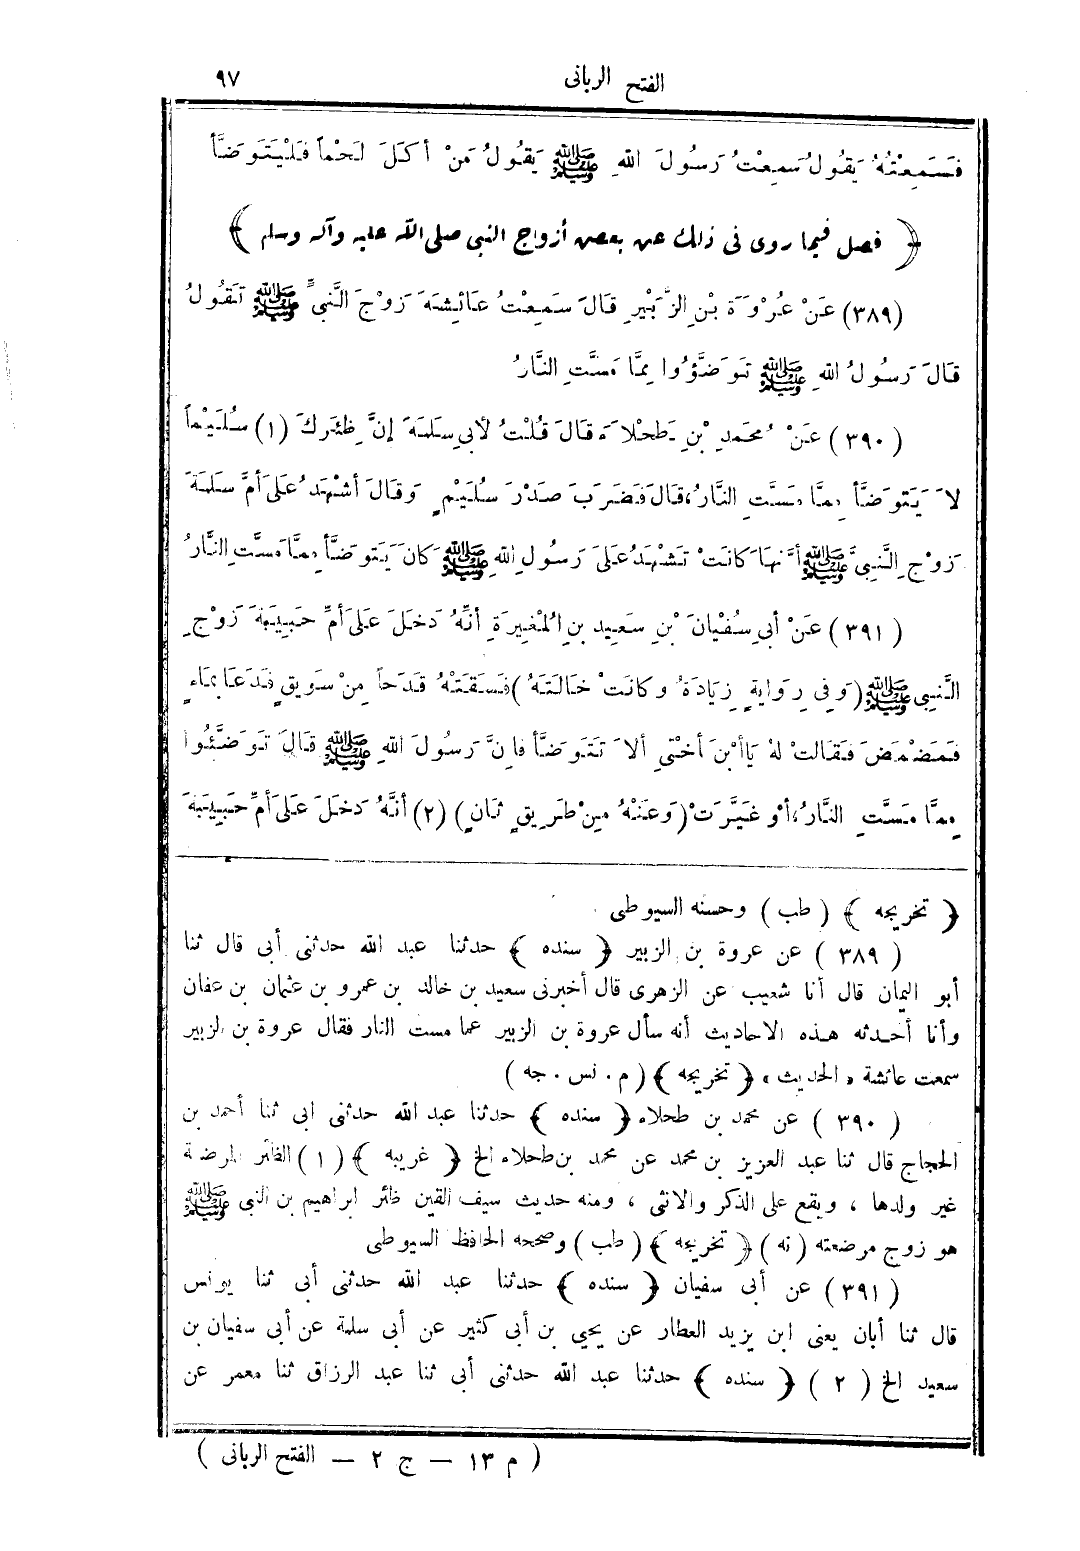 الفتح الربانى ٩٧
فَسَمِعْتُهُ يَقُولُ سَمِعْتُ رَسُولَ اللهِ ﷺ يَقُولُ مَنْ أَكَلَ لَحْماً فَلْيَتَوَضَّأْ
﴿ فصل فيما روى فى ذلك عن بعض أزواج النبى صلى الله عليه وآله وسلم ﴾
(٣٨٩) عَنْ عُرْوَةَ بْنِ الزُّبَيْرِ قَالَ سَمِعْتُ عَائِشَةَ زَوْجَ النَّبىِّ ﷺ تَقُولُ
قَالَ رَسُولُ اللهِ ﷺ تَوَضَّؤُوا مِمَّا مَسَّتِ النَّارُ
(٣٩٠) عَنْ مُحَمَّدِ بْنِ طَحْلَاءَ قَالَ قُلْتُ لأَبِى سَلَمَةَ إِنَّ ظِئْرَكَ (١) سُلَيْماً
لاَ يَتَوَضَّأُ مِمَّا مَسَّتِ النَّارُ، قَالَ فَضَرَبَ صَدْرَ سُلَيْمٍ وَقَالَ أَشْهَدُ عَلَى أُمِّ سَلَمَةَ
زَوْجِ النَّبِىِّ ﷺ أَنَّهَا كَانَتْ تَشْهَدُ عَلَى رَسُولِ اللهِ ﷺ كَانَ يَتَوَضَّأُ مِمَّا مَسَّتِ النَّارُ
(٣٩١) عَنْ أَبِى سُفْيَانَ بْنِ سَعِيدِ بنِ الْمُغِيرَةِ أَنَّهُ دَخَلَ عَلَى أُمِّ حَبِيبَةَ زَوْجِ
النَّبِى ﷺ (وَفِى رِوَايَةٍ زِيَادَةُ وَكَانَتْ خَالَتَهُ) فَسَقَتْهُ قَدَحاً مِنْ سَوِيقٍ فَدَعَا بِمَاءٍ
فَمَضْمَضَ فَقَالَتْ لهُ يَاأبْنَ أُخْتِى أَلاَ تَتَوَضَّأُ فَإِنَّ رَسُولَ اللهِ ﷺ قَالَ تَوَضَّئُوا
مِمَّا مَسَّتِ النَّارُ، أَوْ غَيَّرَتْ (وَعَنْهُ مِنْ طَرِيقٍ ثَانٍ) (٢) أَنَّهُ دَخَلَ عَلَى أُمِّ حَبِيبَةَ
﴿ تخريجه ﴾ ( طب ) وحسنه السيوطى
( ٣٨٩ ) عن عروة بن الزبير ﴿ سنده ﴾ حدثنا عبد الله حدثنى أبى قال ثنا
أبو اليمان قال أنا شعيب عن الزهرى قال أخبرنى سعيد بن خالد بن عمرو بن عثمان بن عفان
وأنا أحدثه هذه الاحاديث أنه سأل عروة بن الزبير عما مست النار فقال عروة بن الزبير
سمعت عائشة « الحديث » ﴿ تخريجه ﴾ ( م . نس . جه )
( ٣٩٠ ) عن محمد بن طحلاء ﴿ سنده ﴾ حدثنا عبد الله حدثنى ابى ثنا أحمد بن
الحجاج قال ثنا عبد العزيز بن محمد عن محمد بن طحلاء الخ ﴿ غريبه ﴾ ( ١ ) الظئر المرضعة
غير ولدها ، ويقع على الذكر والانثى ، ومنه حديث سيف القين ظئر ابراهيم بن النبى ﷺ
هو زوج مرضعته ( نه ) ﴿ تخريجه ﴾ ( طب ) وصححه الحافظ السيوطى
( ٣٩١ ) عن أبى سفيان ﴿ سنده ﴾ حدثنا عبد الله حدثنى أبى ثنا يونس
قال ثنا أبان يعنى ابن يزيد العطار عن يحيى بن أبى كثير عن أبى سلمة عن أبى سفيان بن
سعيد الخ ( ٢ ) ﴿ سنده ﴾ حدثنا عبد الله حدثنى أبى ثنا عبد الرزاق ثنا معمر عن
( م ١٣ — ج ٢ — الفتح الربانى )